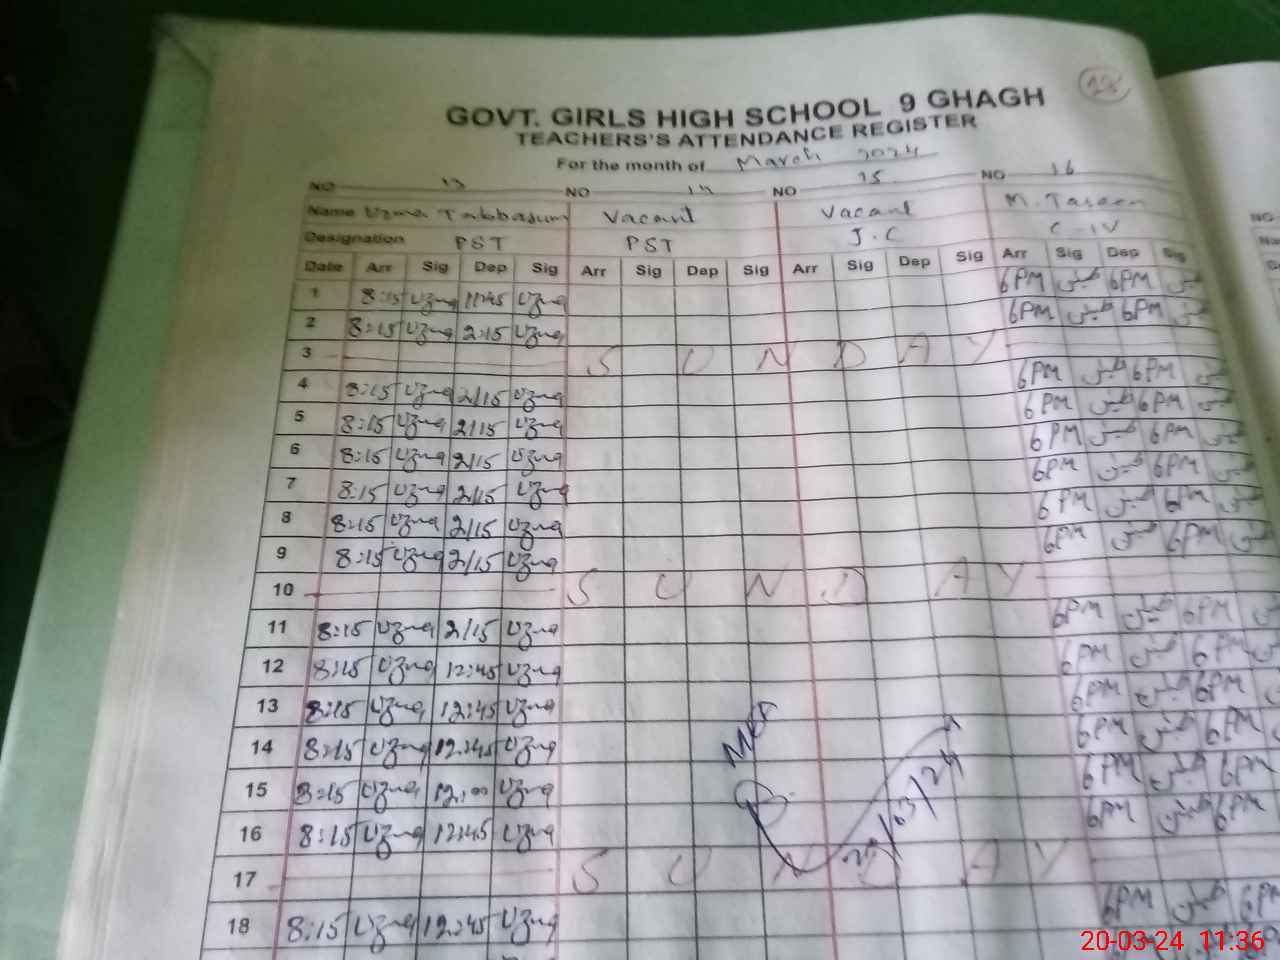 28
GOVT. GIRLS HIGH SCHOOL 9 GHAGH
TEACHERS'S ATTENDANCE REGISTER
For the month of March 2024
NO 13 NO 14 NO 15 NO 16
Name Uzma Tabbasum Vacant Vacant M. Taseen
Designation PST PST J.C C-IV
Date Arr Sig Dep Sig Arr Sig Dep Sig Arr Sig Dep Sig Arr Sig Dep Sig
1 8:15 Uzma 11:45 Uzma 6PM 6PM
2 8:15 Uzma 2:15 Uzma 6PM 6PM
3 S U N D A Y
4 8:15 Uzma 2/15 Uzma 6PM 6PM
5 8:15 Uzma 2/15 Uzma 6PM 6PM
6 8:15 Uzma 2/15 Uzma 6PM 6PM
7 8:15 Uzma 2/15 Uzma 6PM 6PM
8 8:15 Uzma 2/15 Uzma 6PM 6PM
9 8:15 Uzma 2/15 Uzma 6PM 6PM
10 S U N D A Y
11 8:15 Uzma 2/15 Uzma 6PM 6PM
12 8:15 Uzma 12:45 Uzma 6PM 6PM
13 8:15 Uzma 12:45 Uzma 6PM 6PM
14 8:15 Uzma 12:45 Uzma 6PM 6PM
15 8:15 Uzma 12:00 Uzma 6PM 6PM
16 8:15 Uzma 12:45 Uzma 6PM 6PM
17 S U N D A Y
18 8:15 Uzma 12:45 Uzma 6PM 6PM
20-03-24 11:36